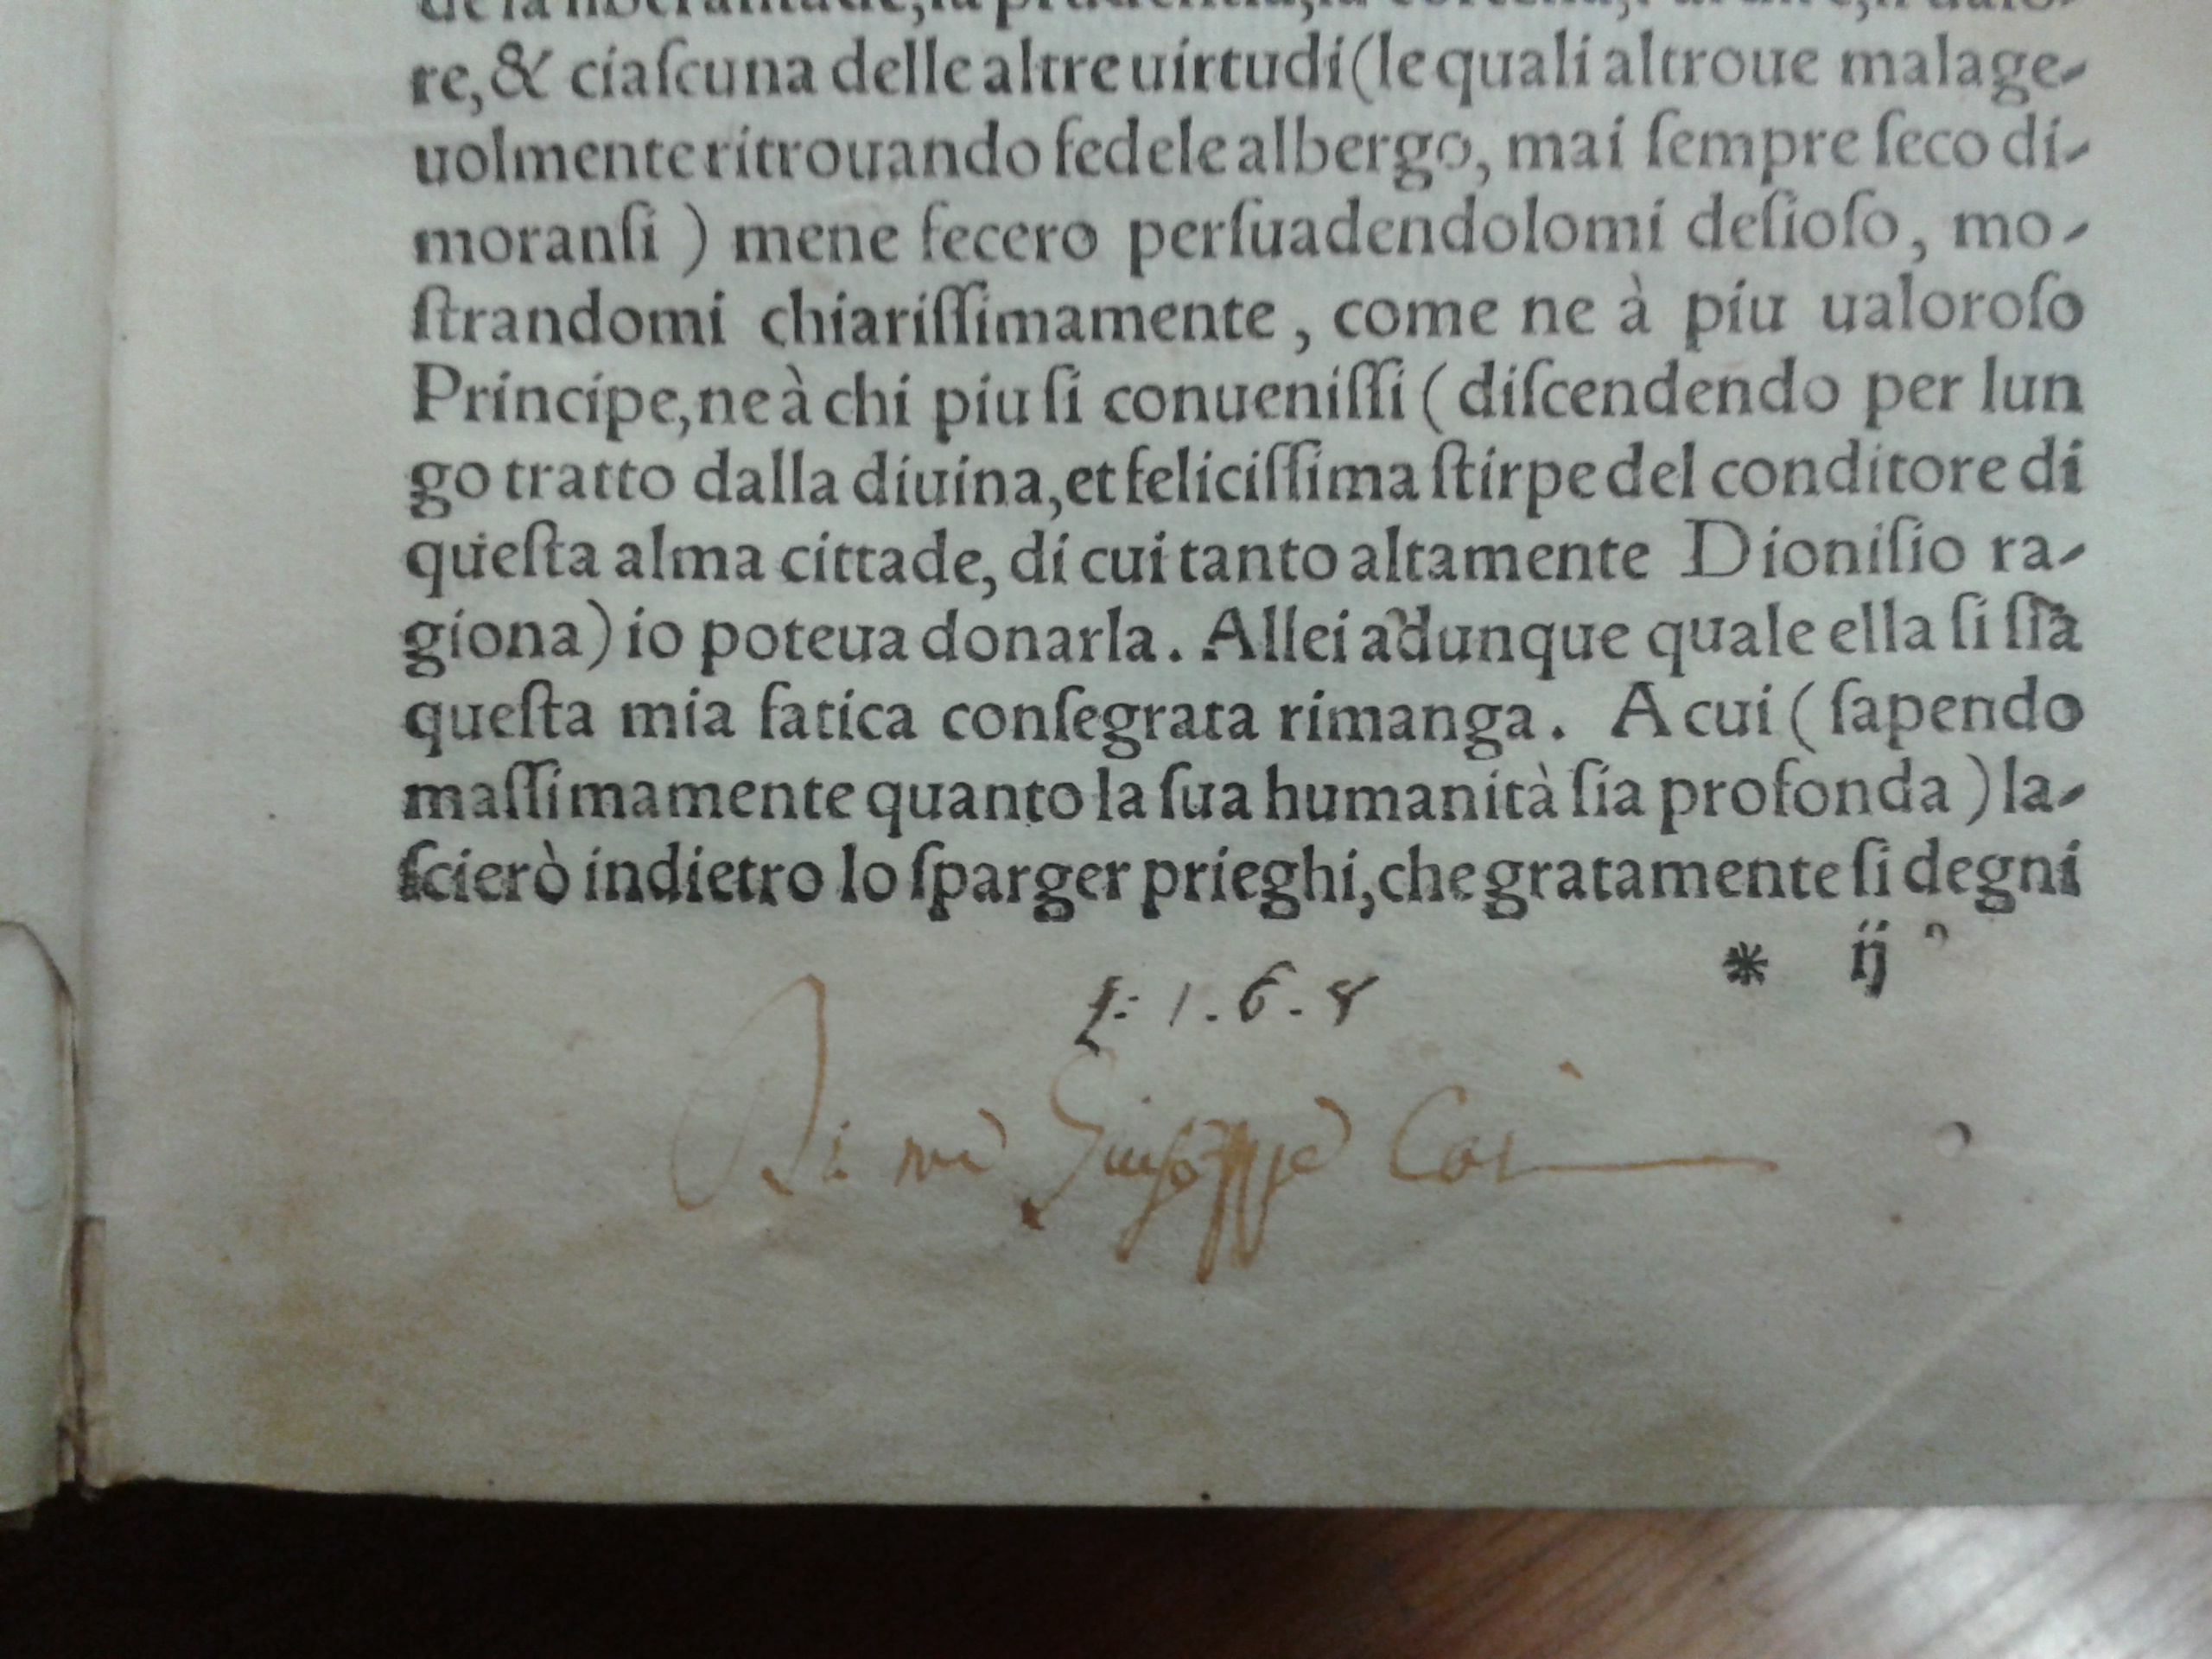 re,& ciaſcuna delle altre uirtudi (le quali altroue malage-
uolmente ritrouando fedele albergo, mai ſempre ſeco di-
moranſi ) mene fecero perſuadendolomi deſioſo, mo-
ſtrandomi chiariſſimamente, come ne à piu ualoroſo
Principe, ne à chi piu ſi conueniſſi ( diſcendendo per lun
go tratto dalla diuina, et feliciſſima ſtirpe del conditore di
queſta alma cittade, di cui tanto altamente Dioniſio ra-
giona) io poteua donarla. Allei adunque quale ella ſi ſia
queſta mia fatica conſegrata rimanga. A cui ( ſapendo
maſſimamente quanto la ſua humanità ſia profonda ) la-
ſcierò indietro lo ſparger prieghi, che gratamente ſi degni
* ij
1.6.8
Di me Giuſeppe